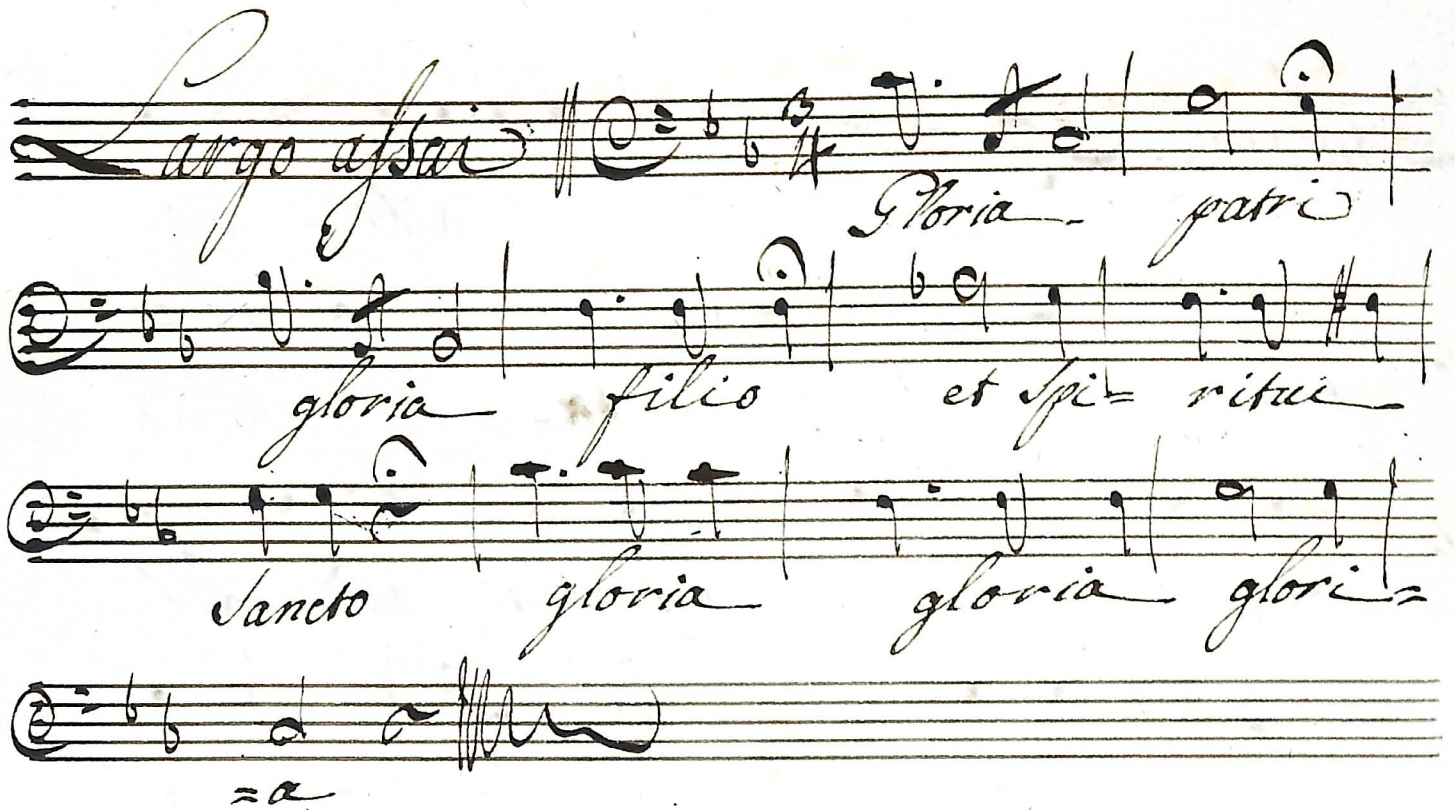 Largo assai
3/4
Gloria patri
gloria filio et Spi= ritui
Sancto gloria gloria glori=
=a